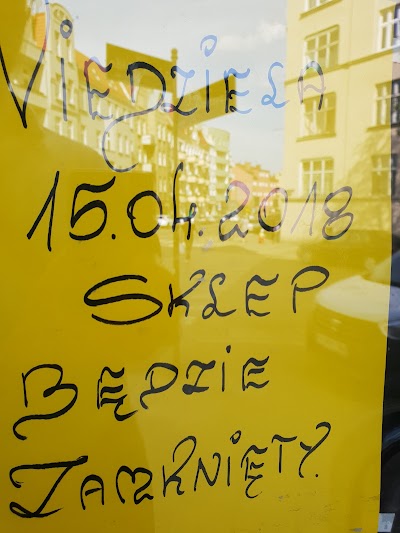 NIEDZIELA
15.04.2018
SKLEP
BĘDZIE
ZAMKNIĘTY.